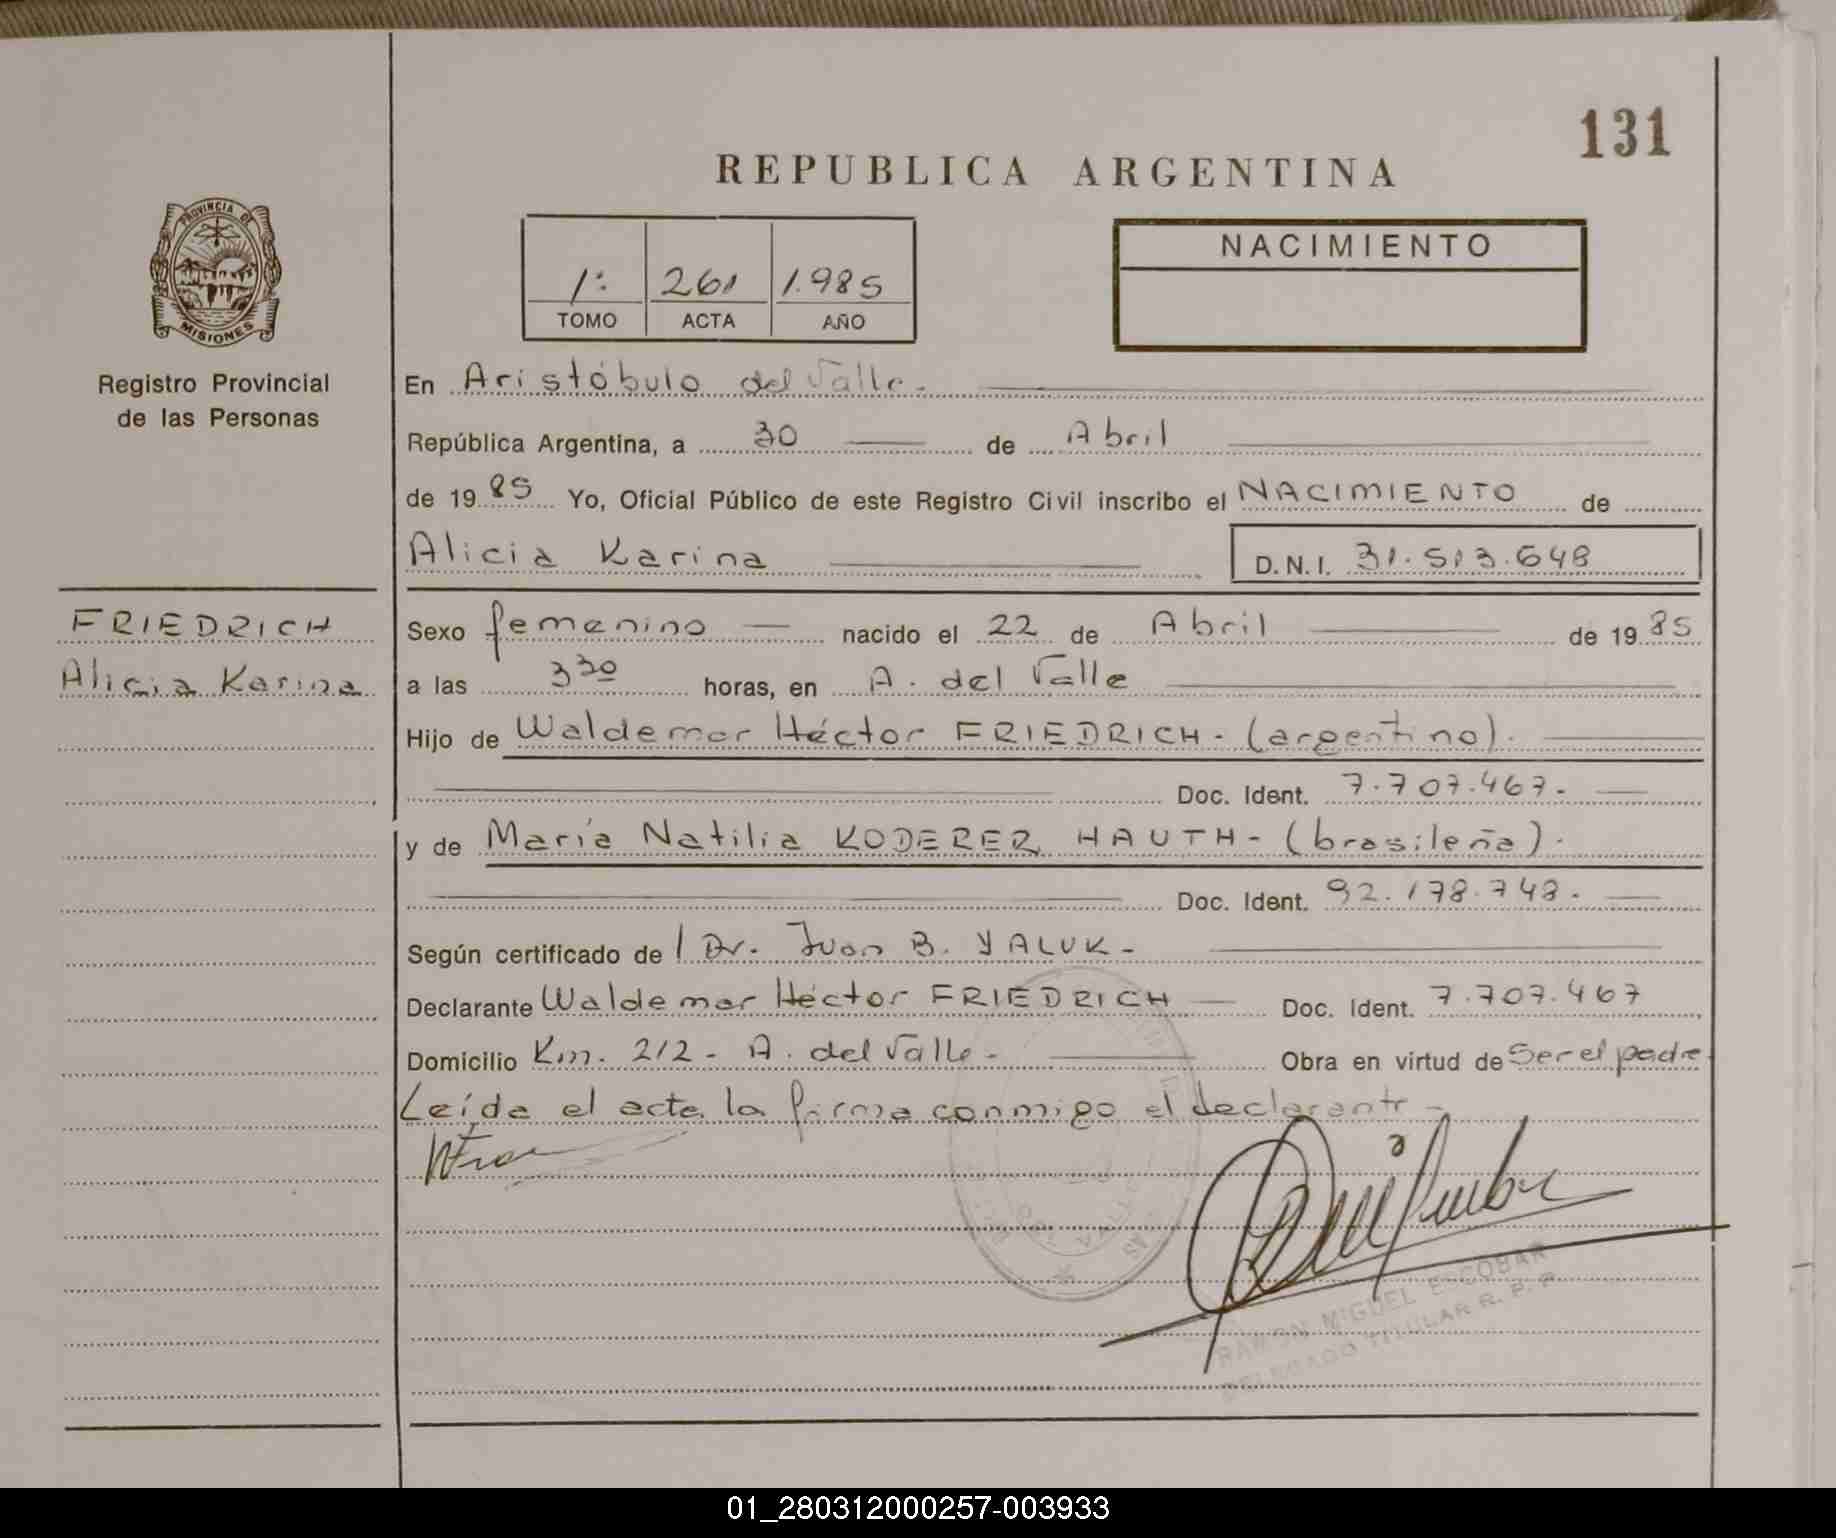 131
REPUBLICA ARGENTINA
PROVINCIA DE
MISIONES
Registro Provincial
de las Personas
1º 261 1.985
TOMO ACTA AÑO
NACIMIENTO
En Aristóbulo del Valle.
República Argentina, a 30 de Abril
de 1985 Yo, Oficial Público de este Registro Civil inscribo el NACIMIENTO de
Alicia Karina D.N.I. 31.513.648
FRIEDRICH
Alicia Karina
Sexo femenino nacido el 22 de Abril de 1985
a las 3 30 horas, en A. del Valle
Hijo de Waldemar Héctor FRIEDRICH - (argentino).
Doc. Ident. 7.707.467.-
y de María Natilia KODERER HAUTH - (brasileña).
Doc. Ident. 92.178.748.
Según certificado de / Dr. Juan B. YALUK -
Declarante Waldemar Héctor FRIEDRICH Doc. Ident. 7.707.467
Domicilio Km. 212 - A. del Valle - Obra en virtud de Ser el padre
Leída el acta la firma conmigo el declarante -
RAMON MIGUEL ESCOBAR
DELEGADO TITULAR R. P. P.
01_280312000257-003933